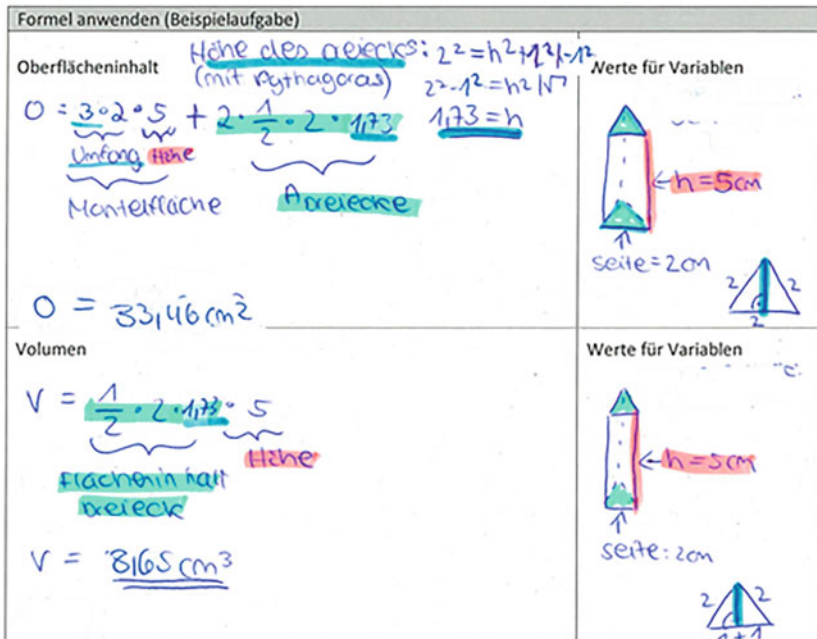 Formel anwenden (Beispielaufgabe)
Oberflächeninhalt
Höhe des Dreiecks: 2² = h² + 1² |-1²
(mit Pythagoras) 2²-1² = h² |√
1,73 = h
O = 3·2·5 + 2·1/2·2·1,73
Umfang Höhe
Mantelfläche A Dreiecke
O = 33,46 cm²
Werte für Variablen
←h=5cm
↑
seite=2cm
2 2
2
Volumen
V = 1/2·2·1,73·5
Höhe
Flächeninhalt
Dreieck
V = 8,65 cm³
Werte für Variablen
←h=5cm
↑
seite:2cm
2 2
1+1